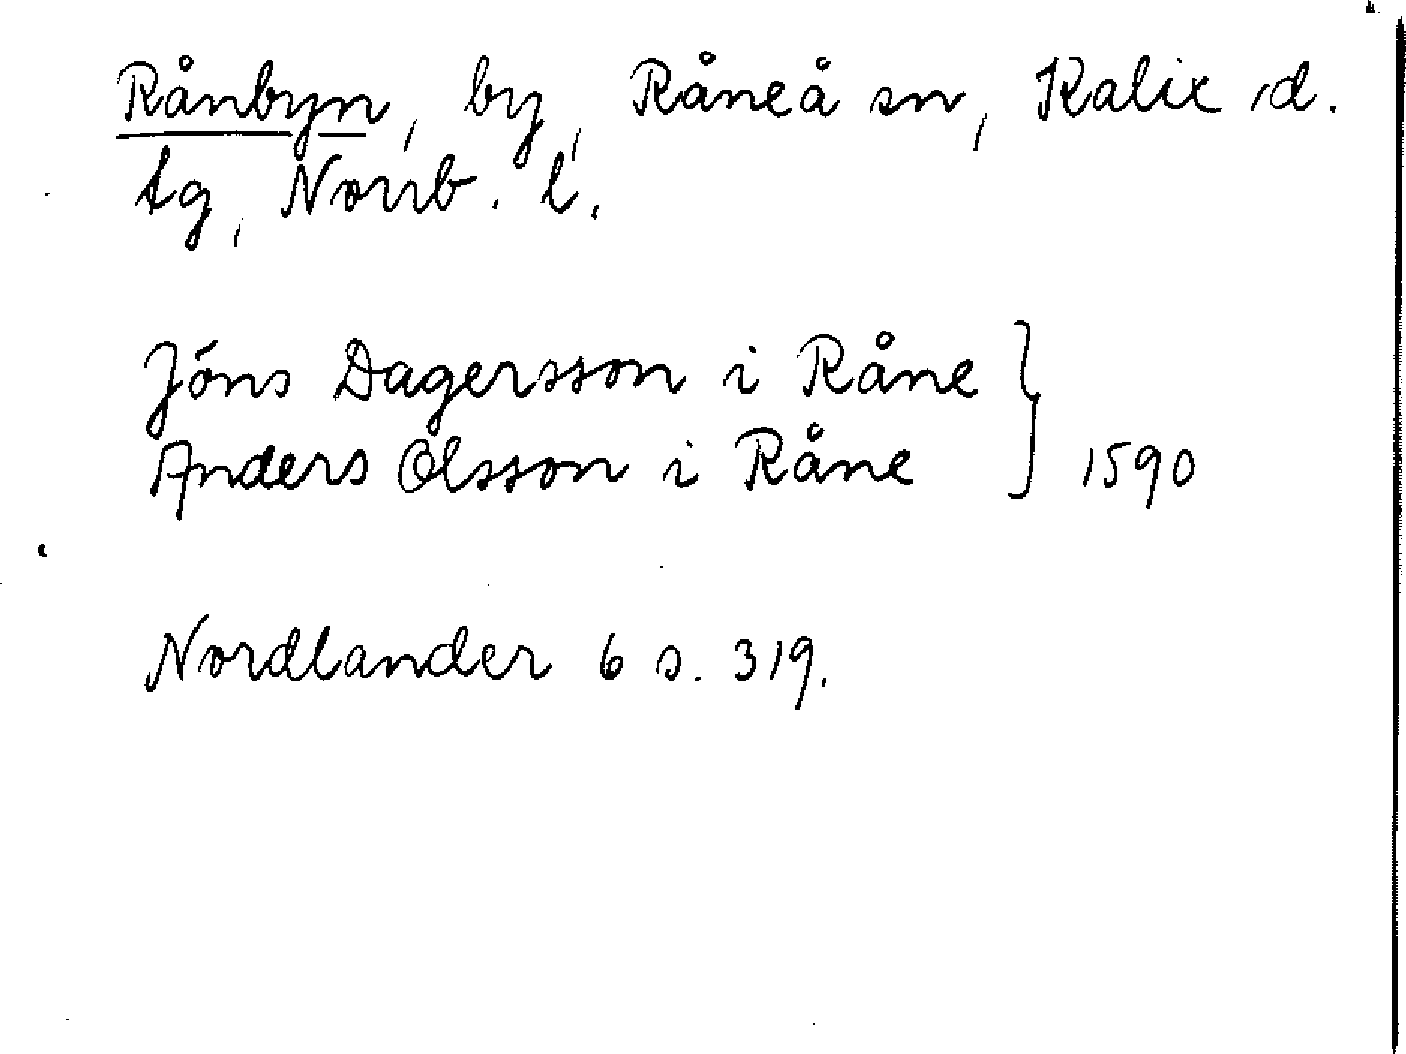 Rånbyn, by, Råneå sn, Kalix d.
tg, Norrb. l.
Jöns Dagersson i Råne
Anders Olsson i Råne } 1590
Nordlander 6 s. 319.